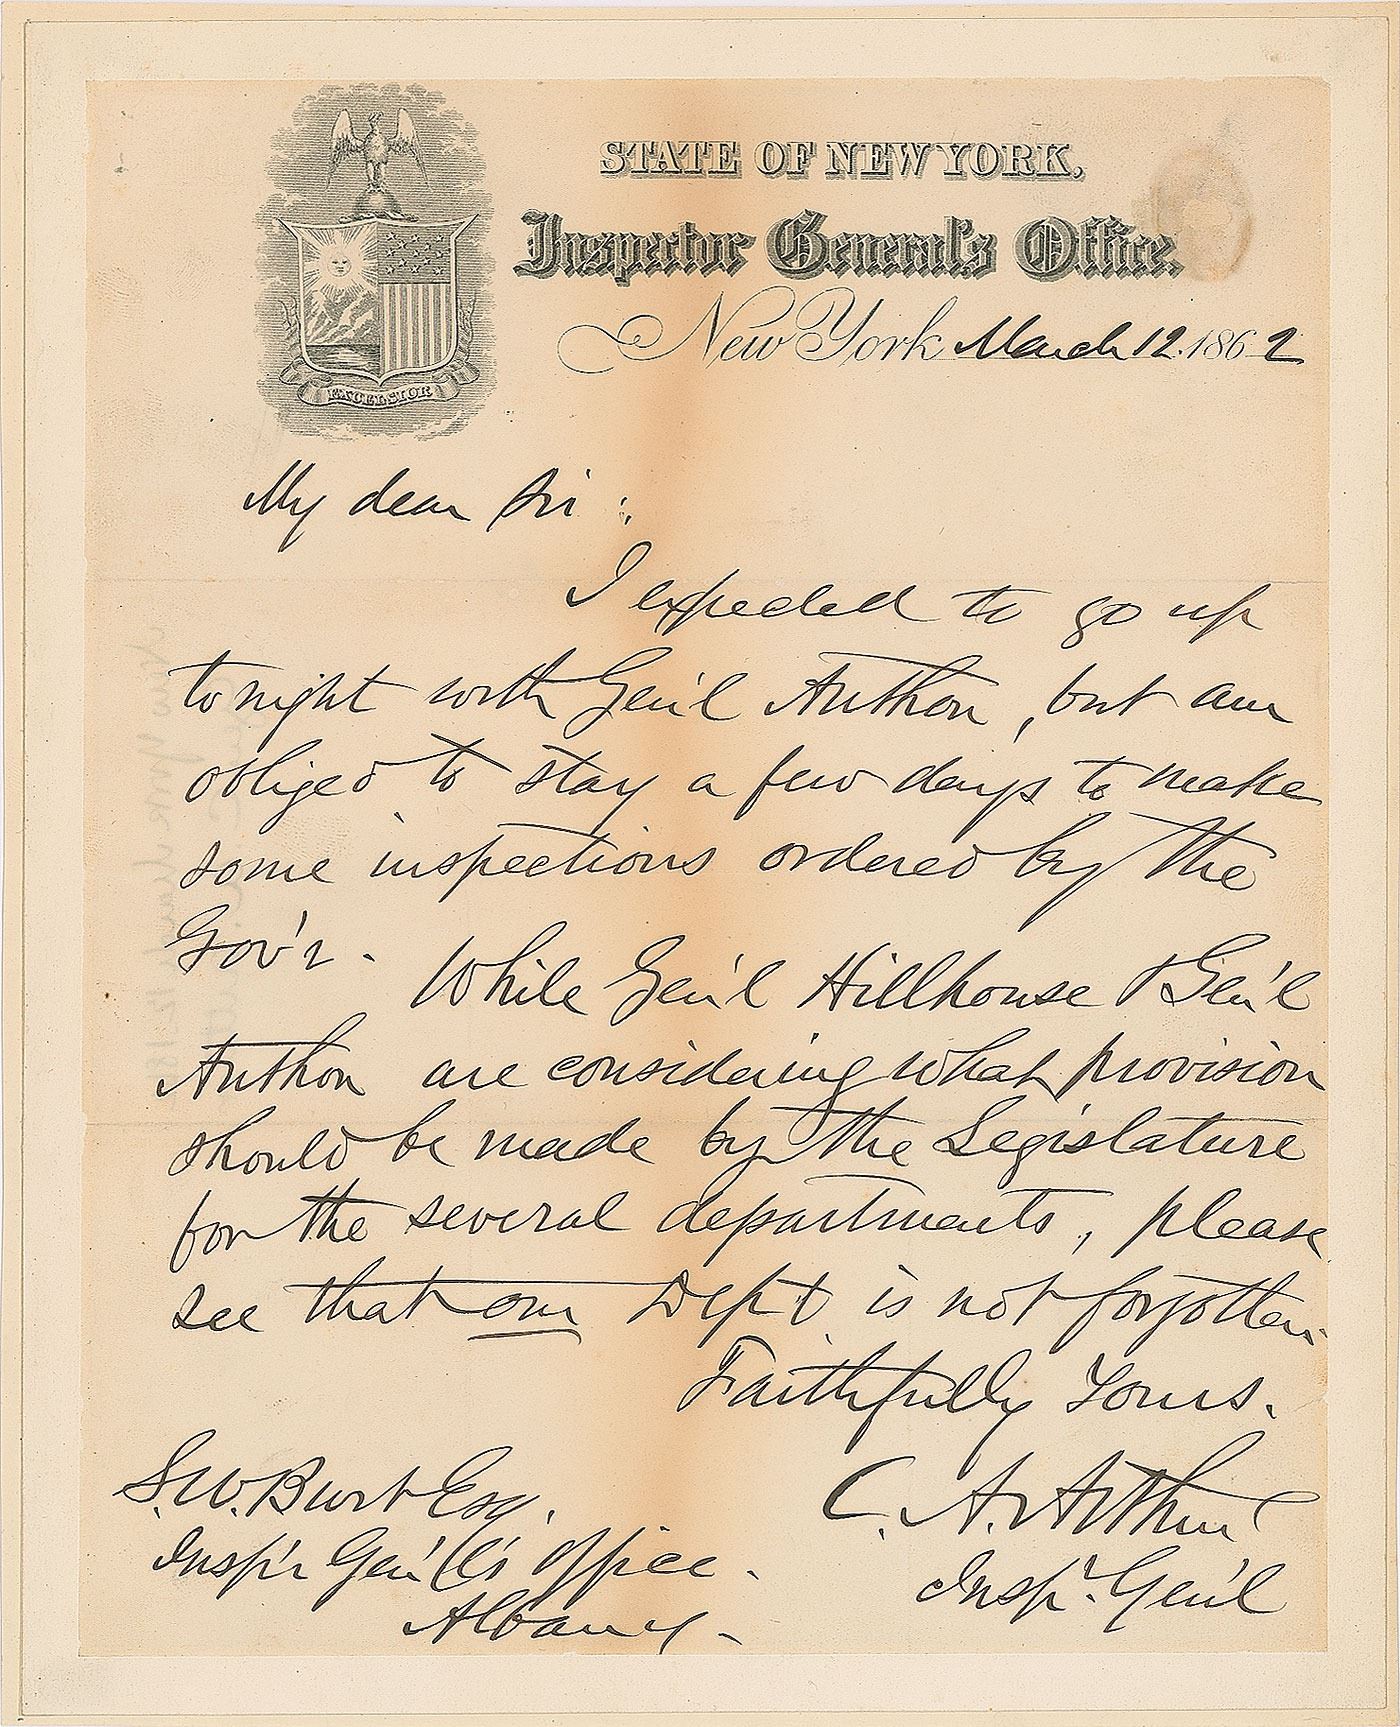 STATE OF NEW YORK,
Inspector General's Office.
New York March 12. 1862
EXCELSIOR
My dear Sir :
I expected to go up
to night with Gen'l Anthon, but am
obliged to stay a few days to make
some inspections ordered by the
Gov'r. While Gen'l Hillhouse & Gen'l
Anthon are considering what provision
should be made by the Legislature
for the several departments, please
see that our Dep't is not forgotten.
Faithfully Yours.
C. A. Arthur
Insp'r. Gen'l
S. W. Burt Esq.
Insp'r Gen'l's Office.
Albany.